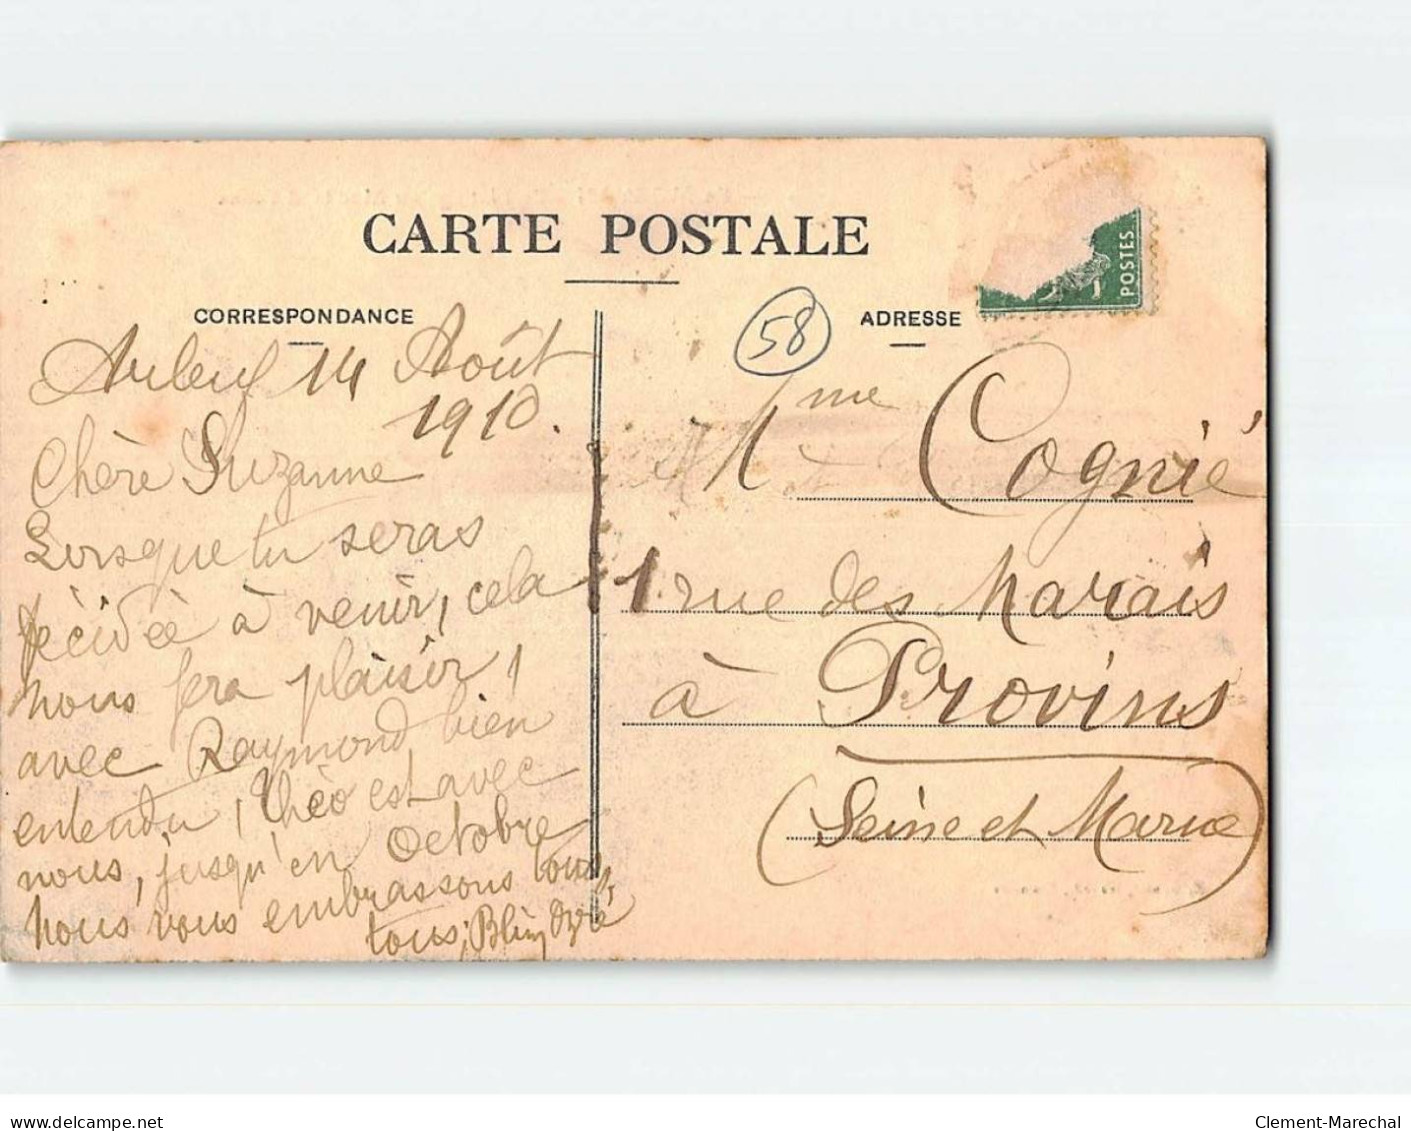 CARTE POSTALE
CORRESPONDANCE
14 Août
1910.
Chère Suzanne
Lorsque tu seras
décidée à venir, cela
nous fera plaisir,
avec Raymond bien
entendu, Théo est avec
nous, jusqu'en Octobre
nous vous embrassons tous
tous;
58
ADRESSE
POSTES
Mme Cognié
1 rue des Marais
à Provins
(Seine et Marne)
www.delcampe.net
Clement-Marechal